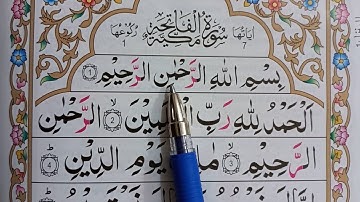 اٰیَاتُهَا 7 سُوْرَةُ الْفَاتِحَةِ مَكِّيَّةٌ رُكُوْعُهَا 1
بِسْمِ اللّٰهِ الرَّحْمٰنِ الرَّحِيْمِ ①
اَلْحَمْدُ لِلّٰهِ رَبِّ الْعٰلَمِيْنَ ② الرَّحْمٰنِ
الرَّحِيْمِ ③ مٰلِكِ يَوْمِ الدِّيْنِ ④